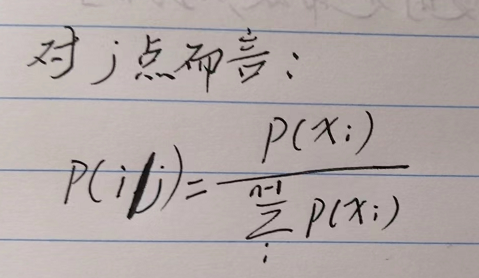 对j点而言:
P(i|j)=
P(xi)
n-1
∑ P(xi)
i